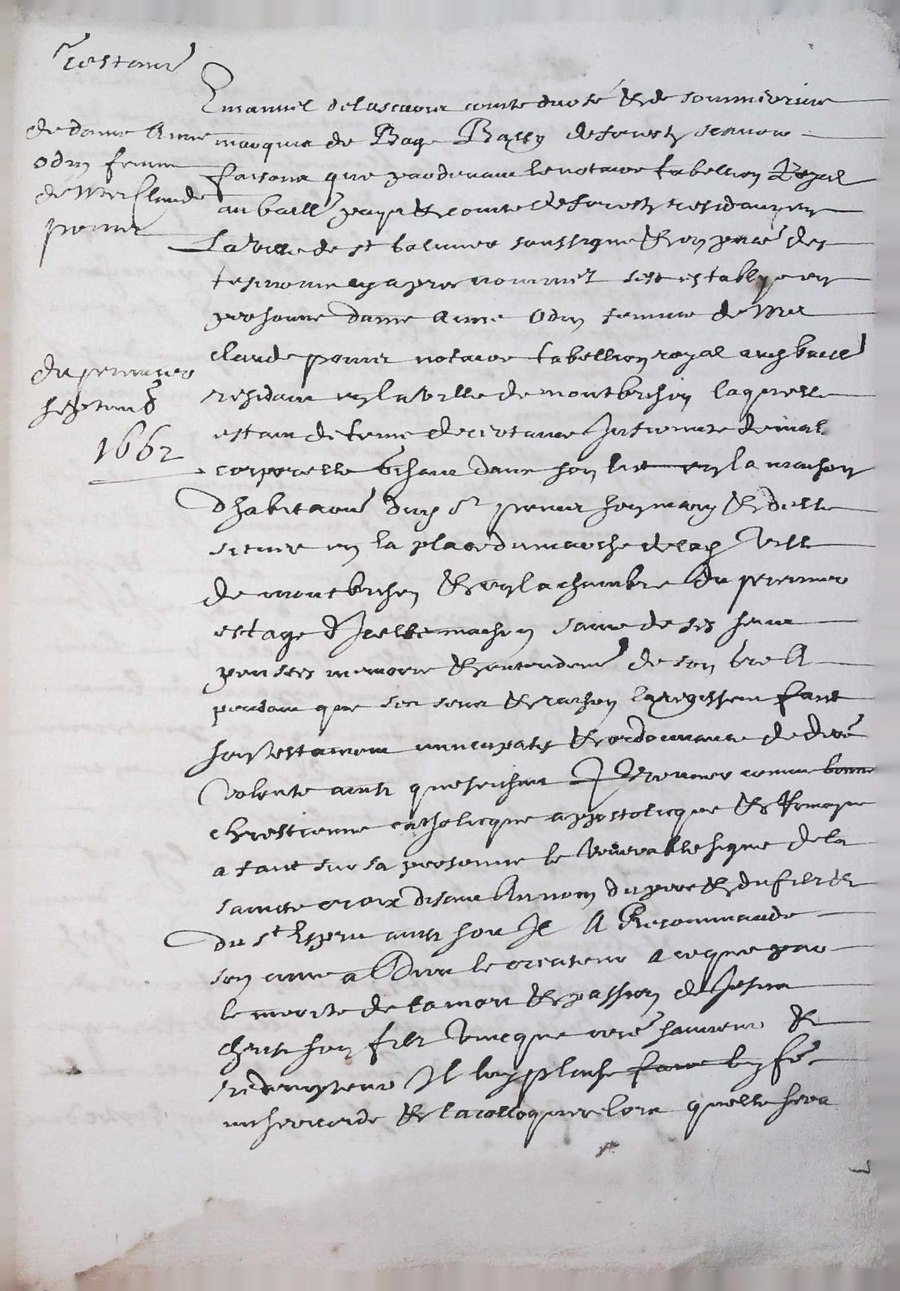 Testamt
de dame Anne
Odin femme
de Mre Claude
premier
du premier
septemb
1662
Emanuel delascaris comte durfé & de sommerive
marquis de Bage Bally de forestz scavoir
faisons que pardevant le notaire tabellion Royal
au baill. & comté de forestz residant en
La ville de st balmier soussigne & en pnce des
tesmoins cy apres nommez sest establye en
personne dame Anne Odin femme de Mre
claude notaire tabellion royal audt baill
residant en la ville de montbrison laquelle
estant de certaine de mal
corporelle dans son lict en la maison
dhabitaon dud sr son mary & delle
scituee en la place du marche de lad ville
de montbrison & en la chambre du premier
estage dIcelle maison saine de ses sens
pensees memoire & entendemt de son gre A
pendant que ses sens & raison la regissent faict
son testament nuncupatif & ordonnance de dre
volonte ainsi que sensuit Et Premier comme bonne
chrestienne catholicque appostolicque & Romaine
a faict sur sa personne le venerable signe de la
saincte croix disant Au nom du pere & du filz &
du st Esprit ainsi soit Il A Recommande
son ame a Dieu le createur a ce que par
le merite de la mort & passion de Jesus
christ son filz unicque nre sauveur &
redempteur Il luy plaise faire luy fe
misericorde & la colloquer lors quelle sera